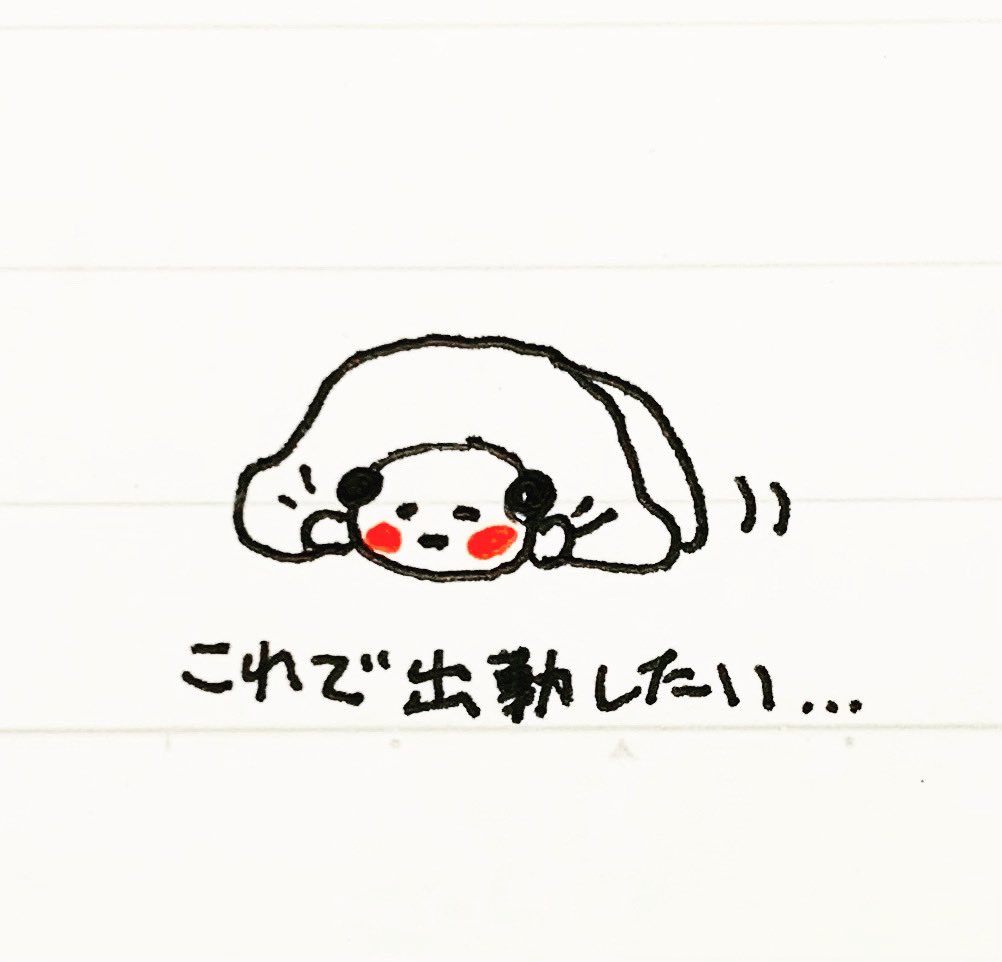 これで出勤したい...